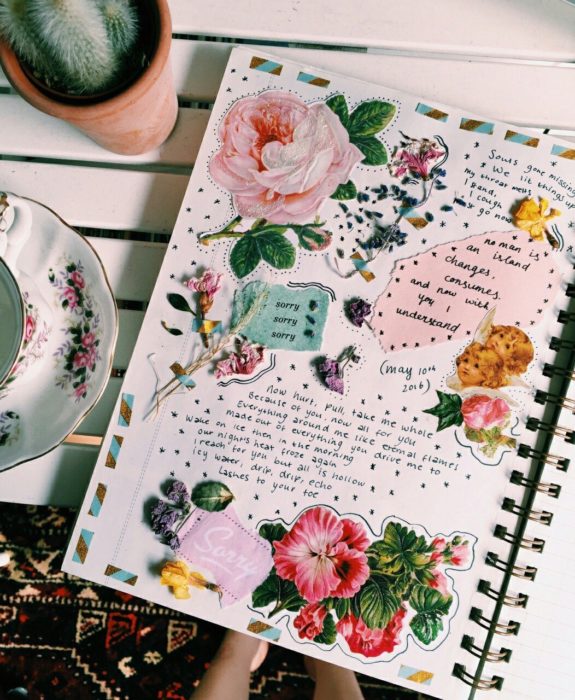 Souls gone missing
We lit things up
my throat melts
I cough
& go now
no man is
an island
changes,
consumes.
and now with
you I
understand
sorry
sorry
sorry
(may 10th
2016)
Now hurt, pull, take me whole
Because of you, now all for you
Everything around me like eternal flames
made out of everything you drive me to
Wake on ice then in the morning
our nights heat froze again
I reach for you but all is hollow
Icy water, drip, drip, echo
Lashes to your toe
Sorry